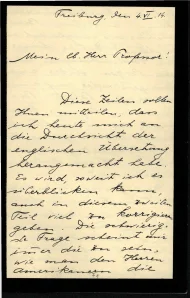 Freiburg, den 4. VI. 14.
Mein l. Herr Professor!
Diese Zeilen sollen
Ihnen mitteilen, dass
ich heute mich an
die Durchsicht der
englischen Übersetzung
herangemacht habe.
Es wird, soweit ich es
überblicken kann,
auch in diesem zweiten
Teil viel zu korrigieren
geben. Die schwierig-
ste Frage scheint mir
immer die zu sein,
wie man den Herren
Amerikanern die